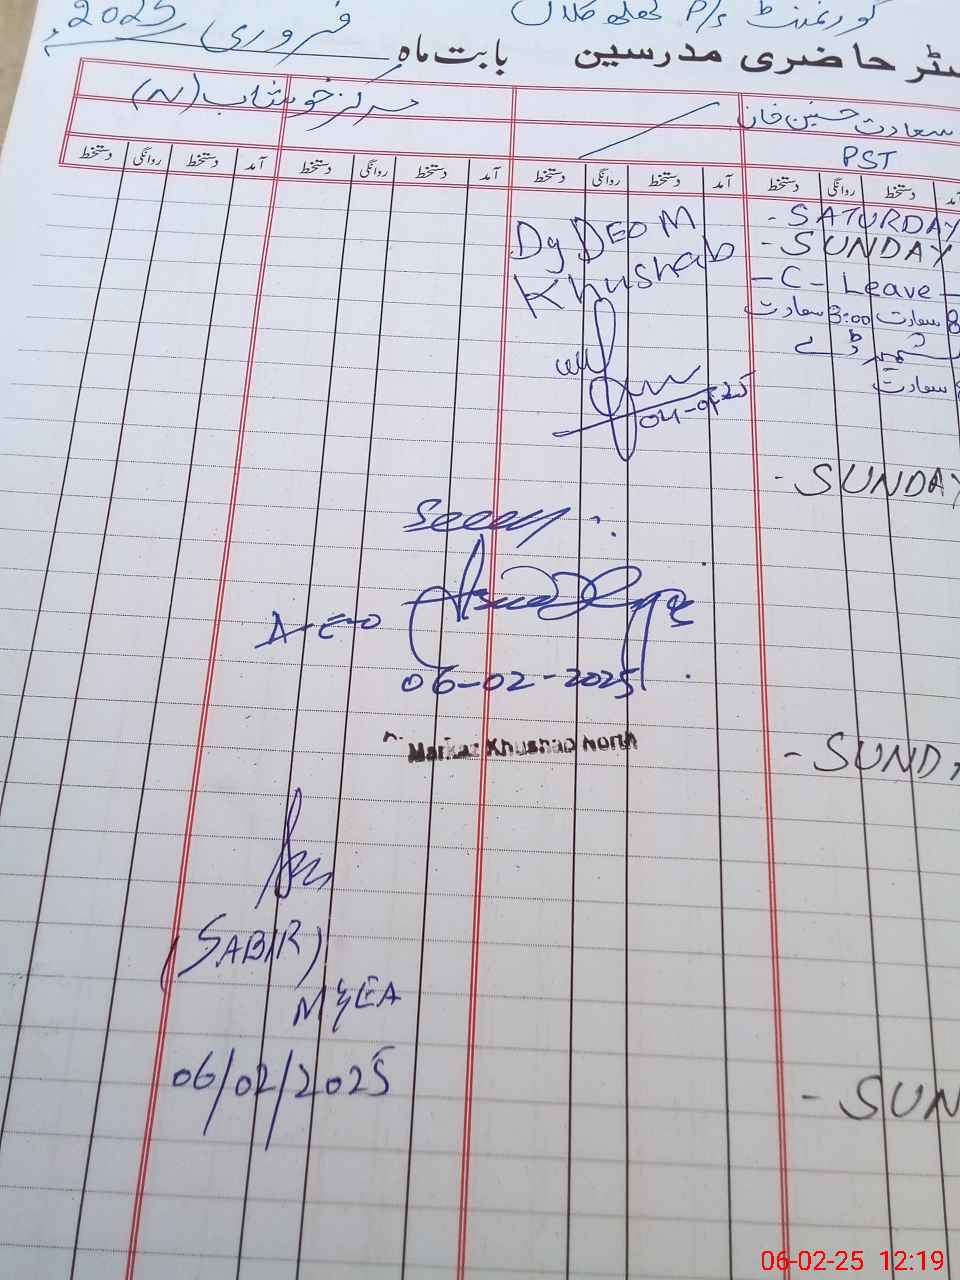 گورنمنٹ P/S
سٹر حاضری مدرسین بابت ماہ فروری 2025ء
سعادت حسنین خان
مرکز خوشاب (N)
PST
آمد دستخط روانگی دستخط آمد دستخط روانگی دستخط آمد دستخط روانگی دستخط
آمد دستخط روانگی دستخط
- SATURDAY
- SUNDAY
- C - Leave -
8 سعادت 3:00 سعادت
سعادت
Dy DEO M
Khushab
- SUNDAY
04-02-25
Seen
A-E-O
06-02-2025
Markaz Khushab North
- SUNDA
(SABIR)
M&EA
06/02/2025
- SUN
06-02-25 12:19